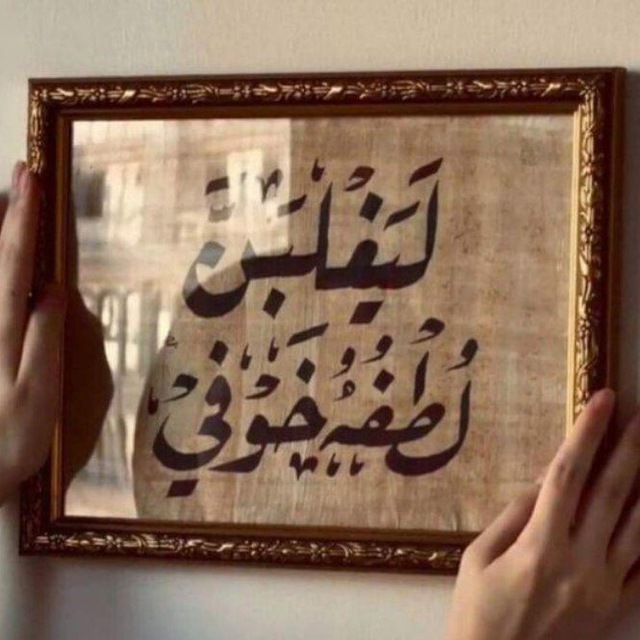 لَيَغْلِبَنَّ
لُطْفُهُ خَوْفِي